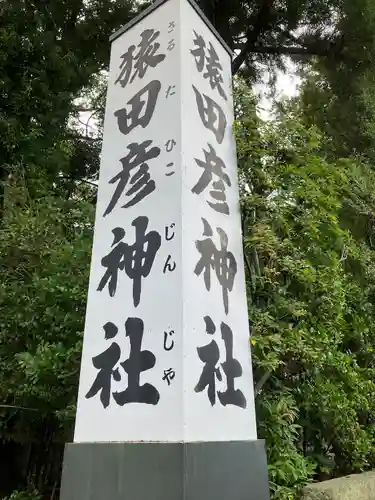 猿田彦神社
さるたひこじんじゃ
猿田彦神社